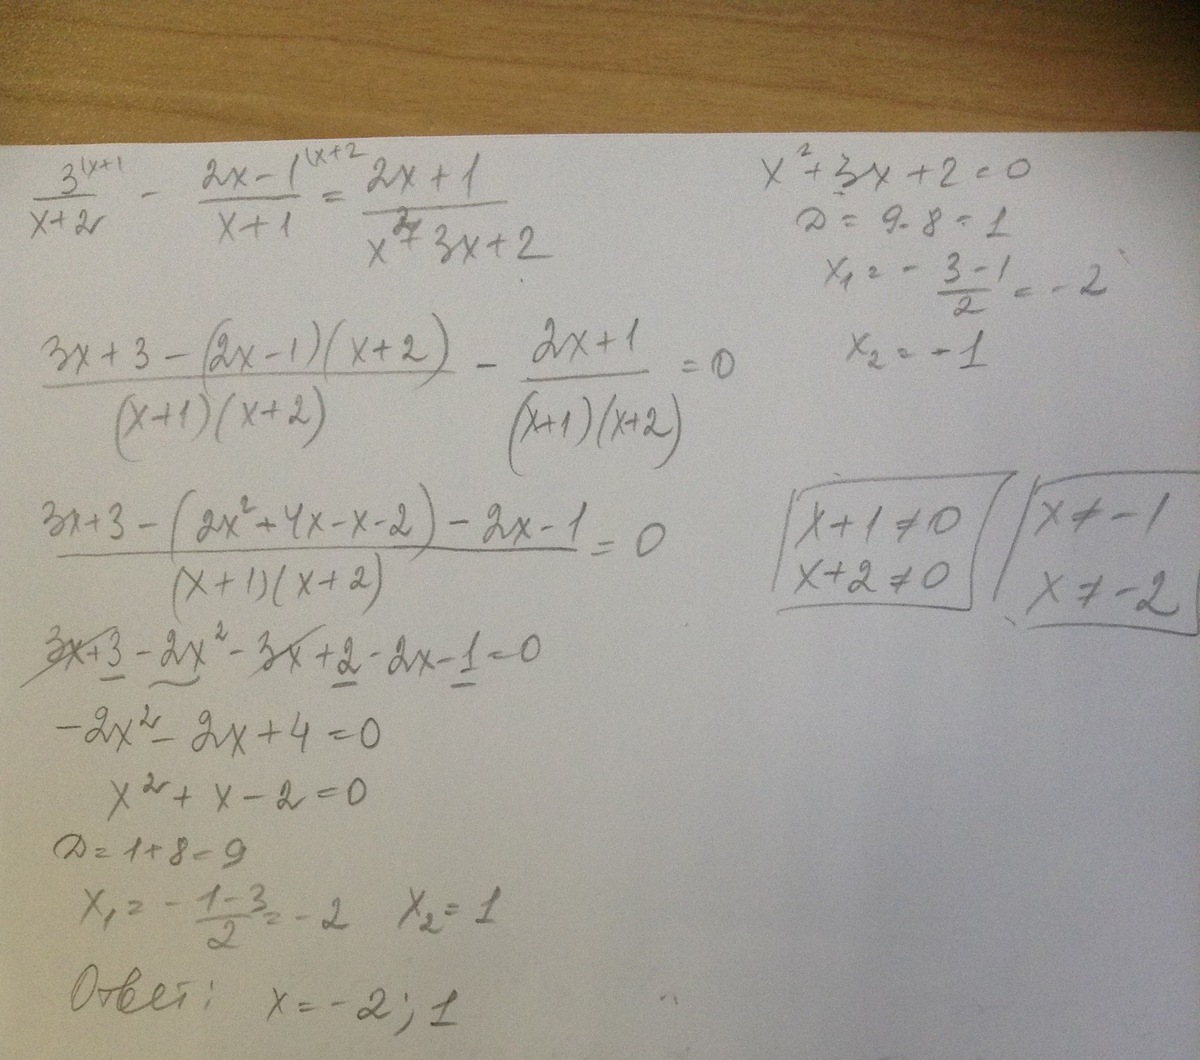 3^(x+1 / x+2 - 2x-1^(x+2 / x+1 = 2x+1 / x²+3x+2
(3x+3-(2x-1)(x+2)) / ((x+1)(x+2)) - (2x+1) / ((x+1)(x+2)) = 0
(3x+3-(2x²+4x-x-2)-2x-1) / ((x+1)(x+2)) = 0
3x+3-2x²-3x+2-2x-1=0
-2x²-2x+4=0
x²+x-2=0
D=1+8=9
x₁=-(1-3)/2=-2 x₂=1
Ответ: x=-2; 1
x²+3x+2=0
D=9-8=1
x₁=-(3-1)/2=-2
x₂=-1
x+1≠0
x+2≠0
x≠-1
x≠-2